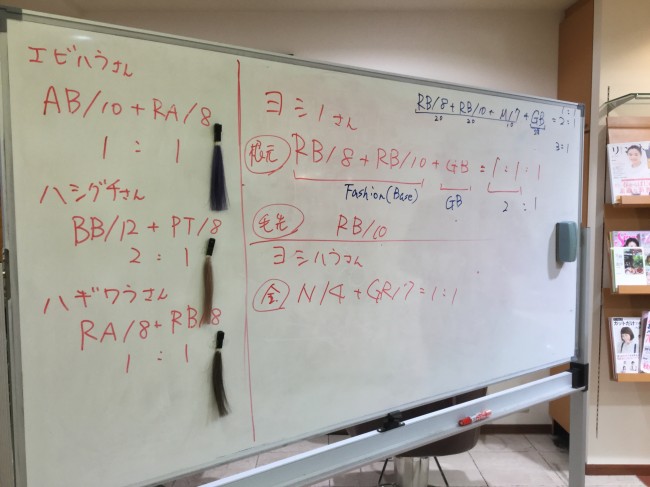 エビハラさん
AB/10 + RA/8
1 : 1
ハシグチさん
BB/12 + PT/8
2 : 1
ハギワラさん
RA/8 + RB/8
1 : 1
RB/8 + RB/10 + M/7 + GB = 2 : 1
3 : 1
ヨシイさん
根元 RB/8 + RB/10 + GB = 1 : 1 : 1
Fashion(Base) GB 2 : 1
毛先 RB/10
ヨシハラさん
N/4 + GR/7 = 1 : 1